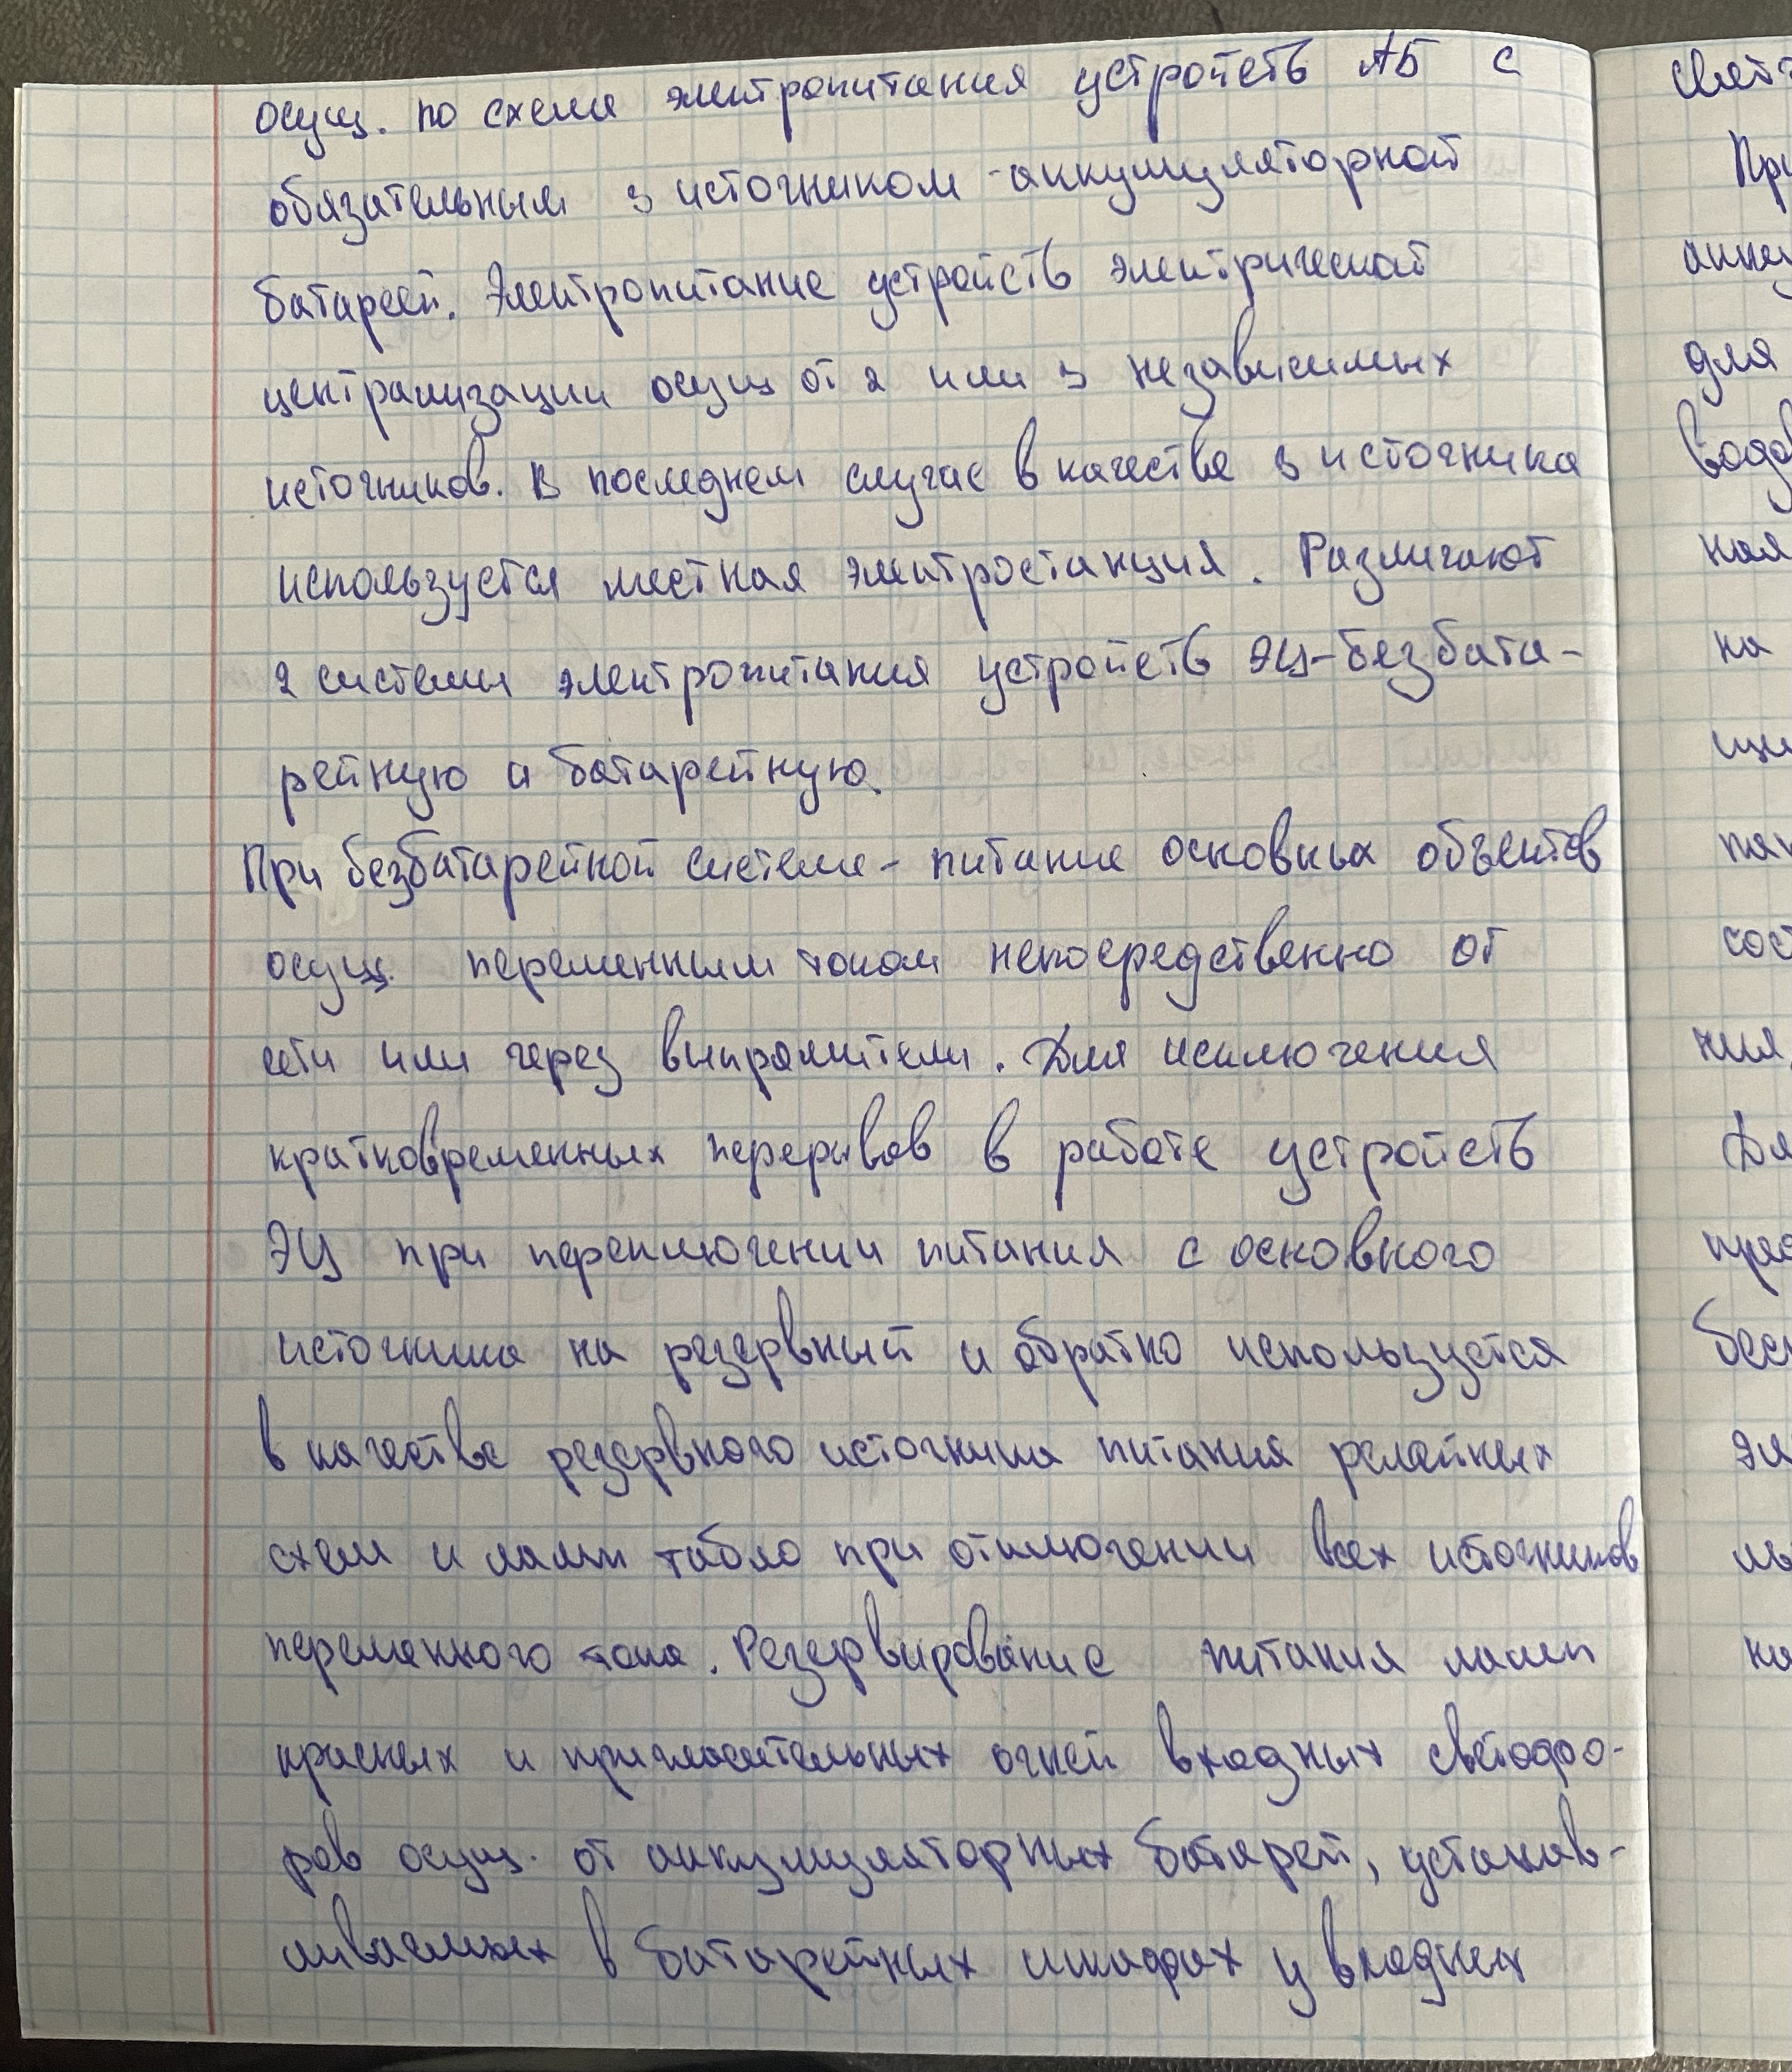 осущ. по схеме электропитания устройств АБ с
обязательным 3 источником - аккумуляторной
батареей. Электропитание устройств электрической
централизации осущ от 2 или 3 независимых
источников. В последнем случае в качестве 3 источника
используется местная электростанция. Различают
2 системы электропитания устройств ЭЦ-безбата-
рейную и батарейную.
При безбатарейной системе - питание основных объектов
осущ. переменным током непосредственно от
сети или через выпрямители. Для исключения
кратковременных перерывов в работе устройств
ЭЦ при переключении питания с основного
источника на резервный и обратно используется
в качестве резервного источника питания релейных
схем и ламп табло при отключении всех источников
переменного тока. Резервирование питания ламп
красных и пригласительных огней входных светофо-
ров осущ. от аккумуляторных батарей, устанав-
ливаемых в батарейных шкафах у входных
При
для
ная
на